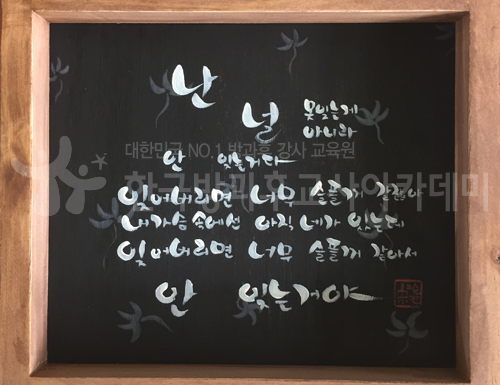 난
널 못잊는게
아니라
대한민국 NO.1 방과후 강사 교육원
안 잊는거다
한국방과후교사아카데미
잊어버리면 너무 슬플께 같아
내가슴 속에선 아직 네가 있는데
잊어버리면 너무 슬플께 같아서
안 잊는거야